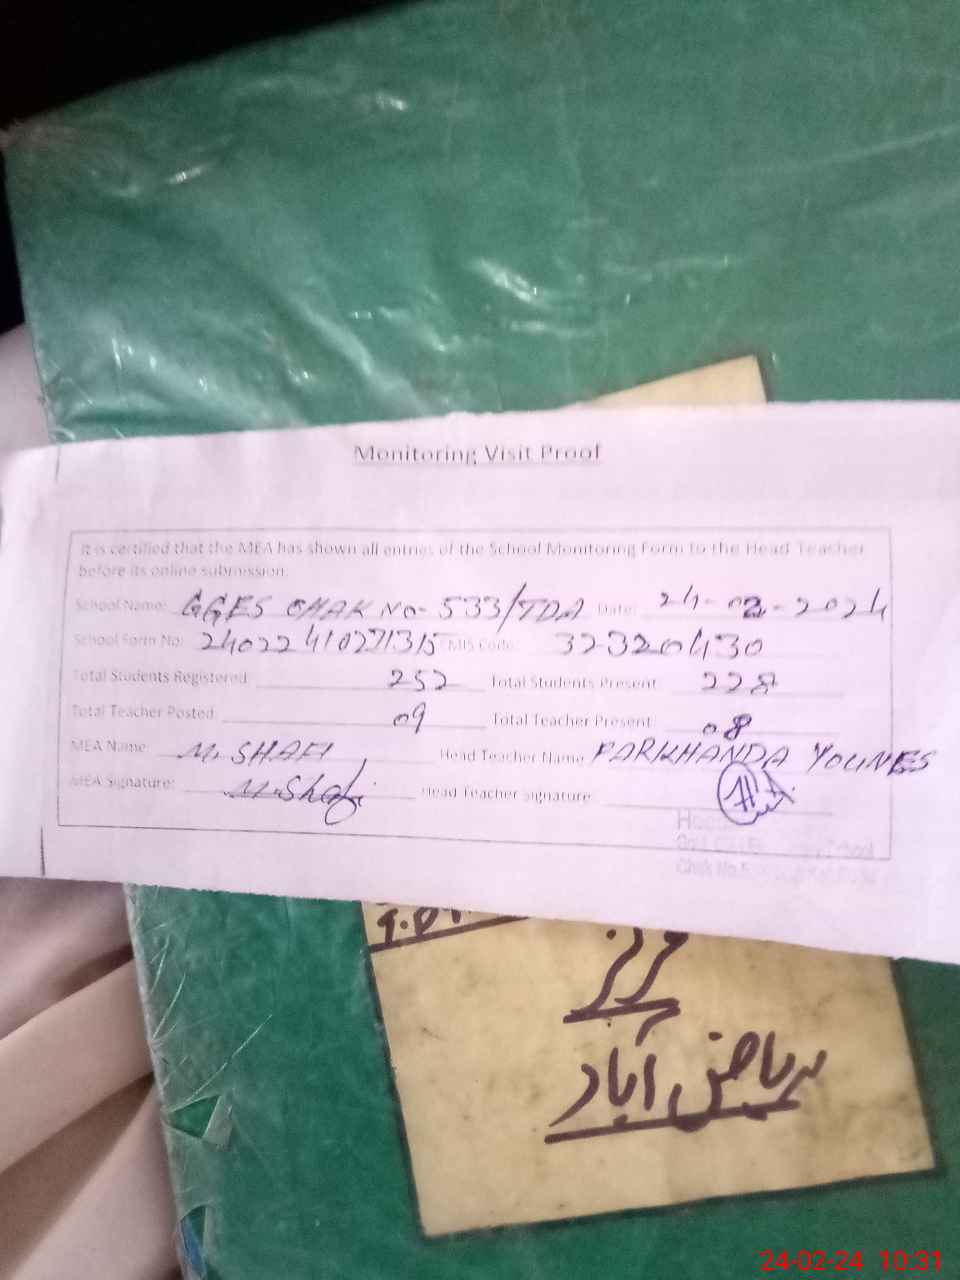 Monitoring Visit Proof
It is certified that the MEA has shown all entries of the School Monitoring Form to the Head Teacher
before its online submission.
School Name: GGES CHAK NO- 533/TDA Date: 24-02-2024
School Form No: 24022410271315 EMIS Code: 32320430
Total Students Registered 252 Total Students Present 228
Total Teacher Posted: 09 Total Teacher Present: 08
MEA Name M. SHAFI Head Teacher Name FARKHANDA YOUNES
MEA Signature: M.Shafi Head Teacher Signature:
Chak No.5
ریاض آباد
24-02-24 10:31